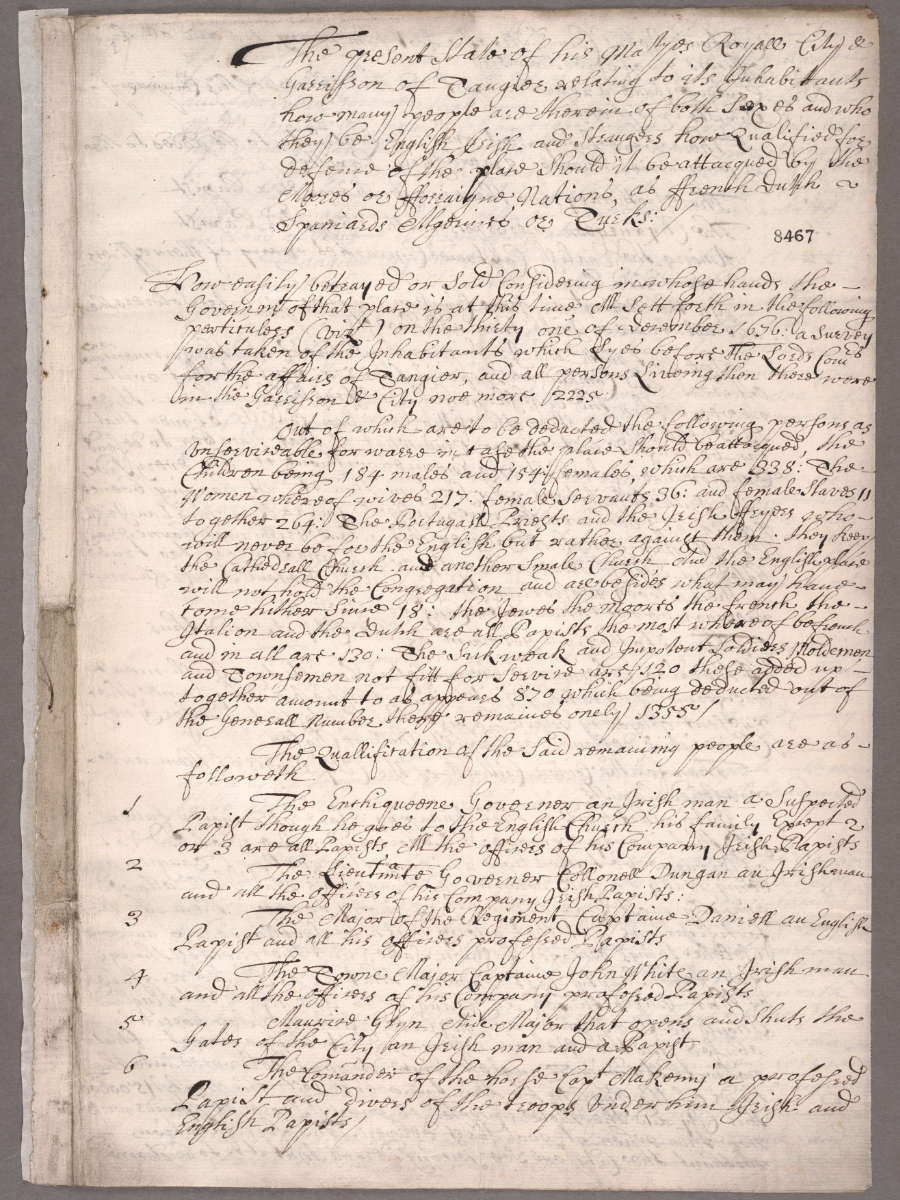 The present State of his Matyes Royall City &
Garrisson of Tangier relating to its Inhabitants
how many people are therein of both Sexes and who
they be English Irish and Strangers how Qualified for
defence of the place should it be attacqued by the
Moores or fforraigne Nations, as ffrench Dutch
Spaniards Algerines or Turks:/
8467
How easily betrayed or Sold Considering in whose hands the
Governmt of that place is at this time All Sett forth in the following
perticulers (Vizt) on the thirty one of December 1676. a survey
was taken of the Inhabitants which Lyes before The Lords Comrs
for the affairs of Tangier, and all persons Liveing then there were
in the Garrisson & City noe more 2225
Out of which are to be deducted the following persons as
Unserviceable for warre in case the place should be attacqued, the
Children being 184 males and 154 females, which are 338: The
Women whereof wives 217: female Servants 36: and female Slaves 11
together 264: The Portugall Priests and the Irish ffryers who
will never be for the English but rather against them. they keep
the Cathedrall Church and another Smale Church and the English place
will not hold the Congregation and are besides what may have
come hither since 18: the Jewes the moores the french the
Italion and the Dutch are all Papists the most whereof be french
and in all are 130: The Sick weak and Impotent Soldiers olde men
and Townsemen not fitt for Service are 120 these added up
together amount to as appears 870 which being deducted out of
the Generall Number there remaines onely 1355/
The Quallification of the Said remaining people are as
followeth
1 The Enchiqueene Governer an Irish man a Suspected
Papist though he goes to the English Church his family Except 2
or 3 are all Papists All the officers of his Company Irish Papists
2 The Lieutinate Governer Collonell Dungan an Irishman
and all the Officers of his Company Irish Papists:
3 The Major of the Regiment Captaine Daniell an English
Papist and all his officers professed Papists
4 The Towne Major Captaine John White an Irish man
and all the officers of his Company professed Papists
5 Maurice Glyn Aide Major that opens and shuts the
Gates of the City an Irish man and a Papist
6 The Comander of the horse Capt Makenny a professed
Papist and divers of the troops under him Irish and
English Papists/